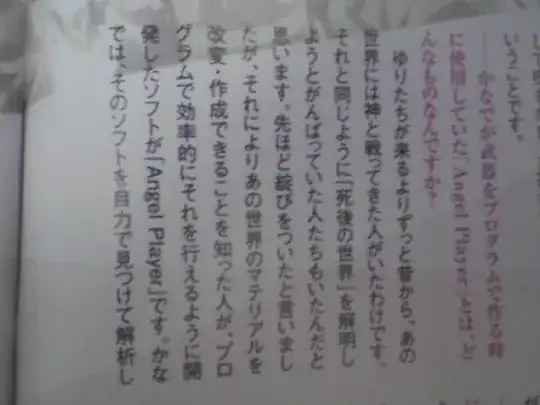 いうことです。
――かなでが武器をプログラムで作る時
に使用していた「Angel Player」とは、ど
んなものなんですか？
ゆりたちが来るよりずっと昔から、あの
世界には神と戦ってきた人がいたわけです。
それと同じように「死後の世界」を解明し
ようとがんばっていた人たちもいたんだと
思います。先ほど綻びをついたと言いまし
たが、それによりあの世界のマテリアルを
改変・作成できることを知った人が、プロ
グラムで効率的にそれを行えるように開
発したソフトが「Angel Player」です。かな
では、そのソフトを自力で見つけて解析し